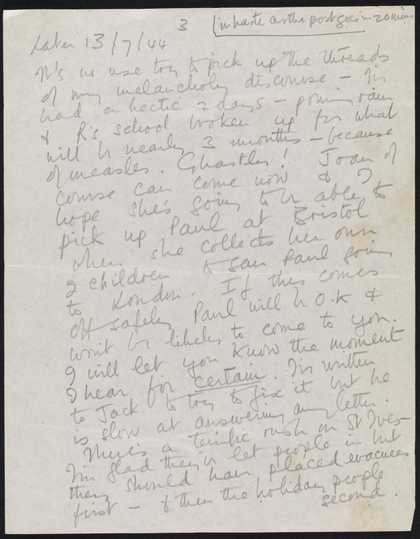 in haste as the post goes in 20 mins
3
Later 13/7/44
It's no use try to pick up the threads
of my melancholy discourse – I've
had a hectic 2 days – pouring rain
& R's school broken up for what
will be nearly 3 months – because
of measles. Ghastly! Joan of
course can come now & I
hope she's going to be able to
pick up Paul at Bristol
when she collects her own
2 children & save Paul going
to London. If this comes
off safely Paul will be O.K &
won't be likely to come to you.
I will let you know the moment
I hear for certain. I've written
to Jack to try to fix it but he
is slow at answering any letter.
There's a terrific rush on St Ives –
I'm glad they let people in but
they should have placed evacuees
first – & then the holiday people
second.